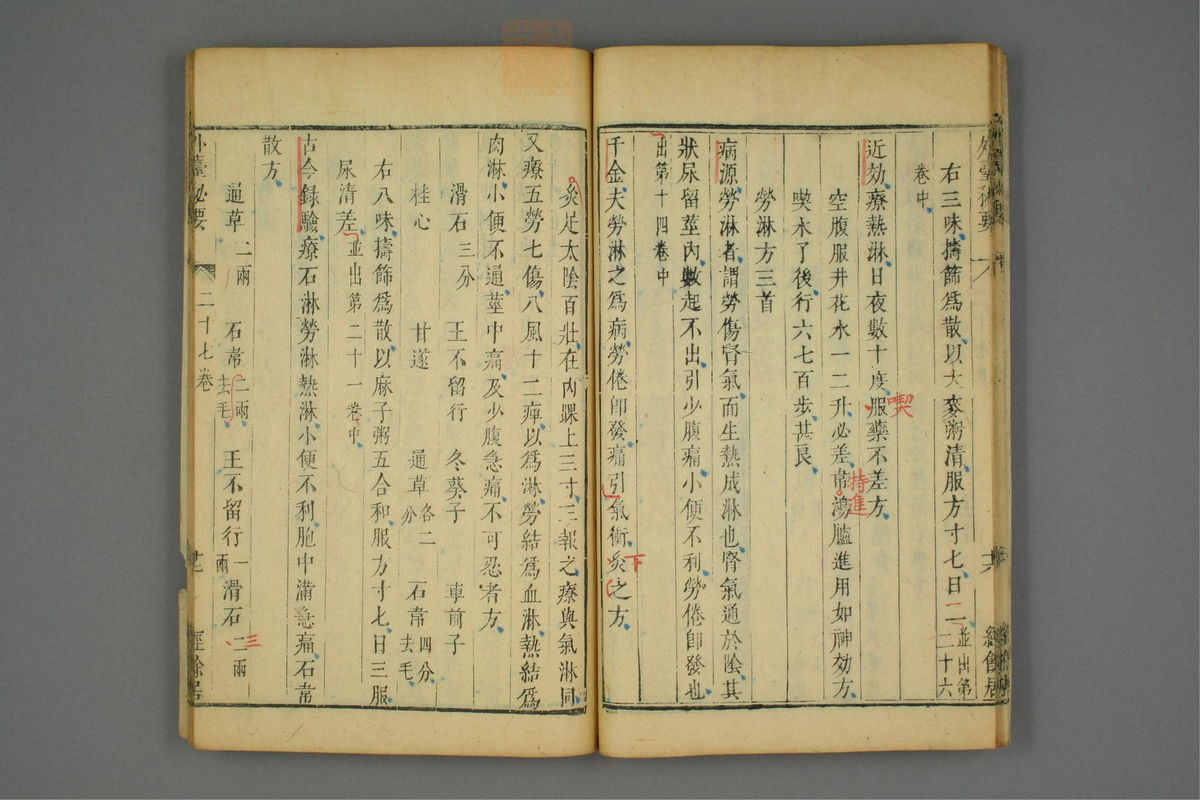 右三味擣篩爲散以大麥粥清服方寸七日二並出第二十六
卷中
近効療熱淋日夜數十度服藥不差方
喫
空腹服井花水一二升必差帝鴻臚進用如神効方
特進
喫水了後行六七百步甚良
勞淋方三首
病源勞淋者謂勞傷腎氣而生熱成淋也腎氣通於陰其
狀尿留莖內數起不出引少腹痛小便不利勞倦卽發也
出第十四卷中
千金夫勞淋之爲病勞倦卽發痛引氣衝灸之方
下
灸足太陰百壯在內踝上三寸三報之療與氣淋同
又療五勞七傷八風十二痺以爲淋勞結爲血淋熱結爲
肉淋小便不通莖中痛及少腹急痛不可忍者方
滑石三分 王不留行 冬葵子 車前子
桂心 甘遂 通草各二分 石韋四分去毛
右八味擣篩爲散以麻子粥五合和服方寸七日三服
尿清差並出第二十一卷中
古今録驗療石淋勞淋熱淋小便不利胞中滿急痛石韋
散方
通草二兩 石韋二兩去毛 王不留行一兩 滑石二兩
三
外臺秘要 二十七卷 經餘居